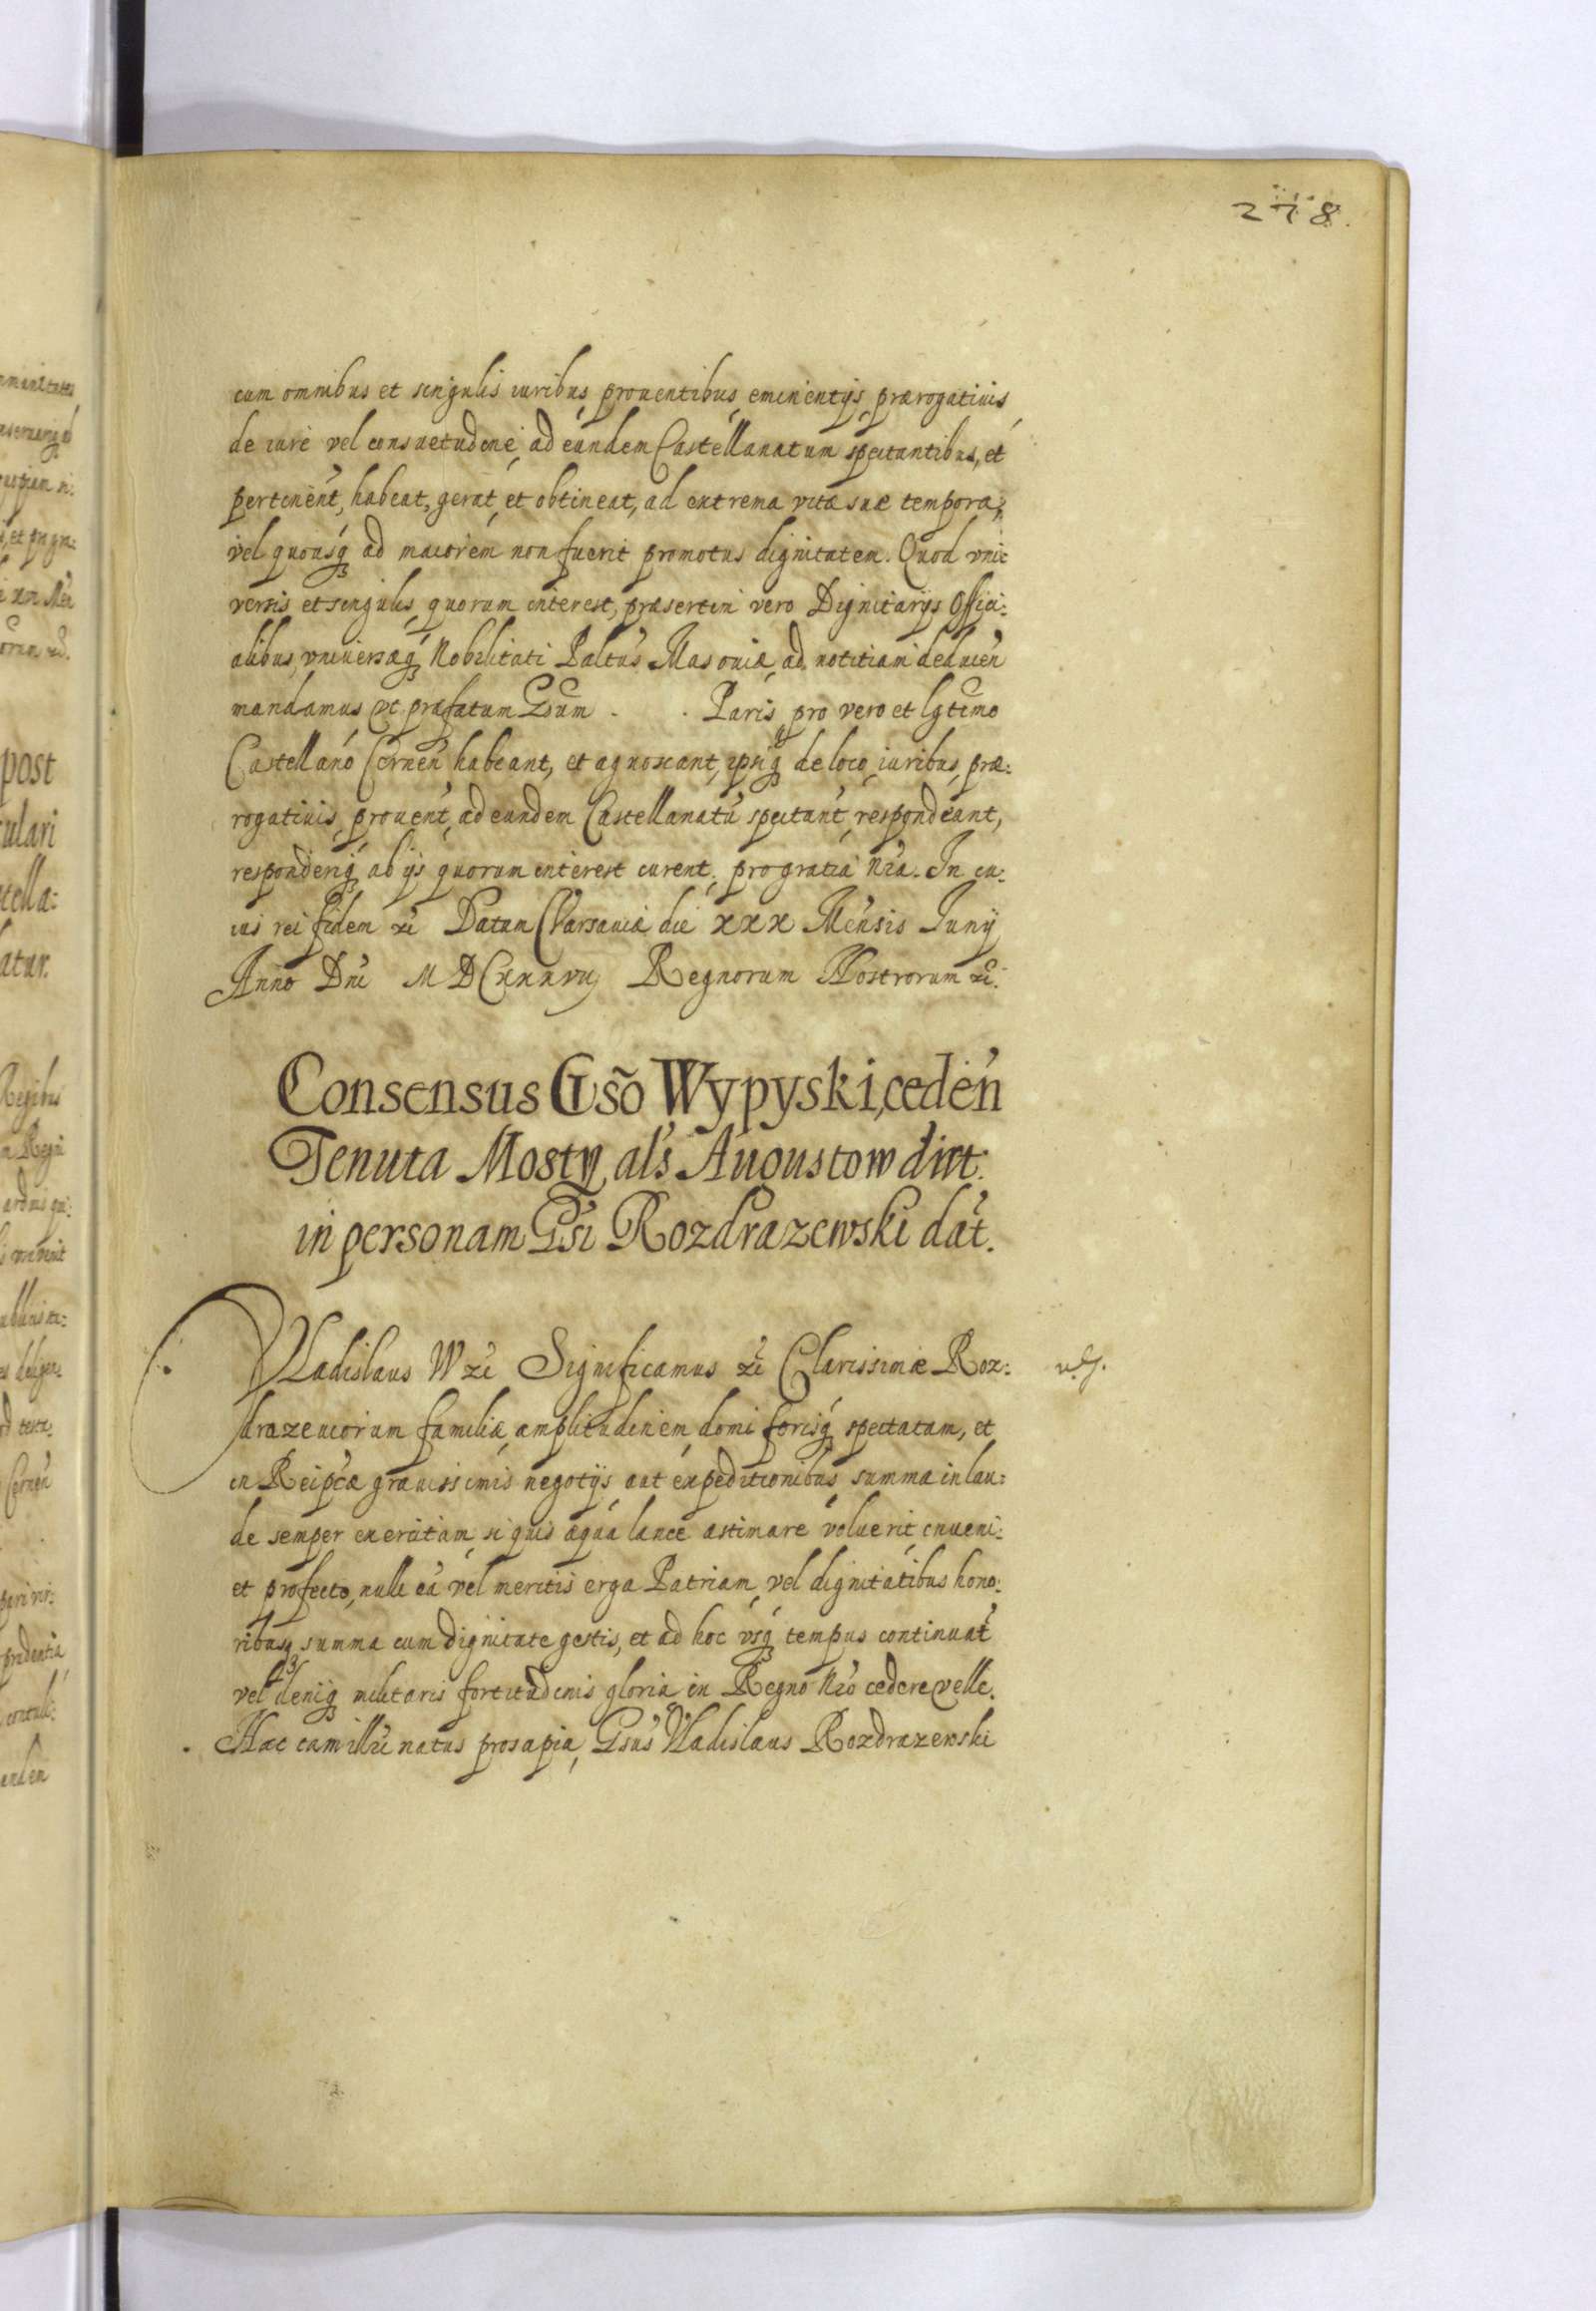 278.
cum omnibus et singulis iuribus prouentibus eminentijs, prærogatiuis
de iure vel consuetudine, ad eundem Castellanatum spectantibus, et
pertinent, habeat, gerat, et obtineat, ad extrema vitæ suæ tempora,
vel quousq ad maiorem non fuerit promotus dignitatem. Quod vni:
versis et singulis, quorum interest, præsertim vero Dignitarijs Offici:
alibus, vniuersæq Nobilitati Paltus Masouiæ, ad notitiam deducen
mandamus vt præfatum Gsum . . Paris, pro vero et lgtimo
Castellano Cernen habeant, et agnoscant, ipsiq de loco, iuribus, præ:
rogatiuis, prouent, ad eundem Castellanatu spectant, respondeant,
responderiq ab ijs quorum interest curent, pro gratia nra. In cu:
ius rei fidem zc Datum Varsauiæ die XXX Mensis Junij
Anno Dni MDCXXXVII Regnorum Nostrorum zc.
Consensus Gso Wypyski, ceden
Tenuta Mosty als Augustow dict.
in personam Gsi Rozdrazewski dat.
Vladislaus IV zc Significamus zc Clarissimæ Roz:
drazeuiorum familiæ, amplitudinem domi forisq spectatam, et
in Reipcæ grauissimis negotijs aut expeditionibus, summa in lau:
de semper exercitam, si quis æqua lance æstimare voluerit, inueni:
et profecto, nulli ea vel meritis erga Patriam, vel dignitatibus hono:
ribusq summa cum dignitate gestis, et ad hoc vsq tempus continuat
vel deniq militaris fortitudinis gloria, in Regno nro cedere velle.
Hac cum illri natus prosapia, Gsus Vladislaus Rozdrazewski